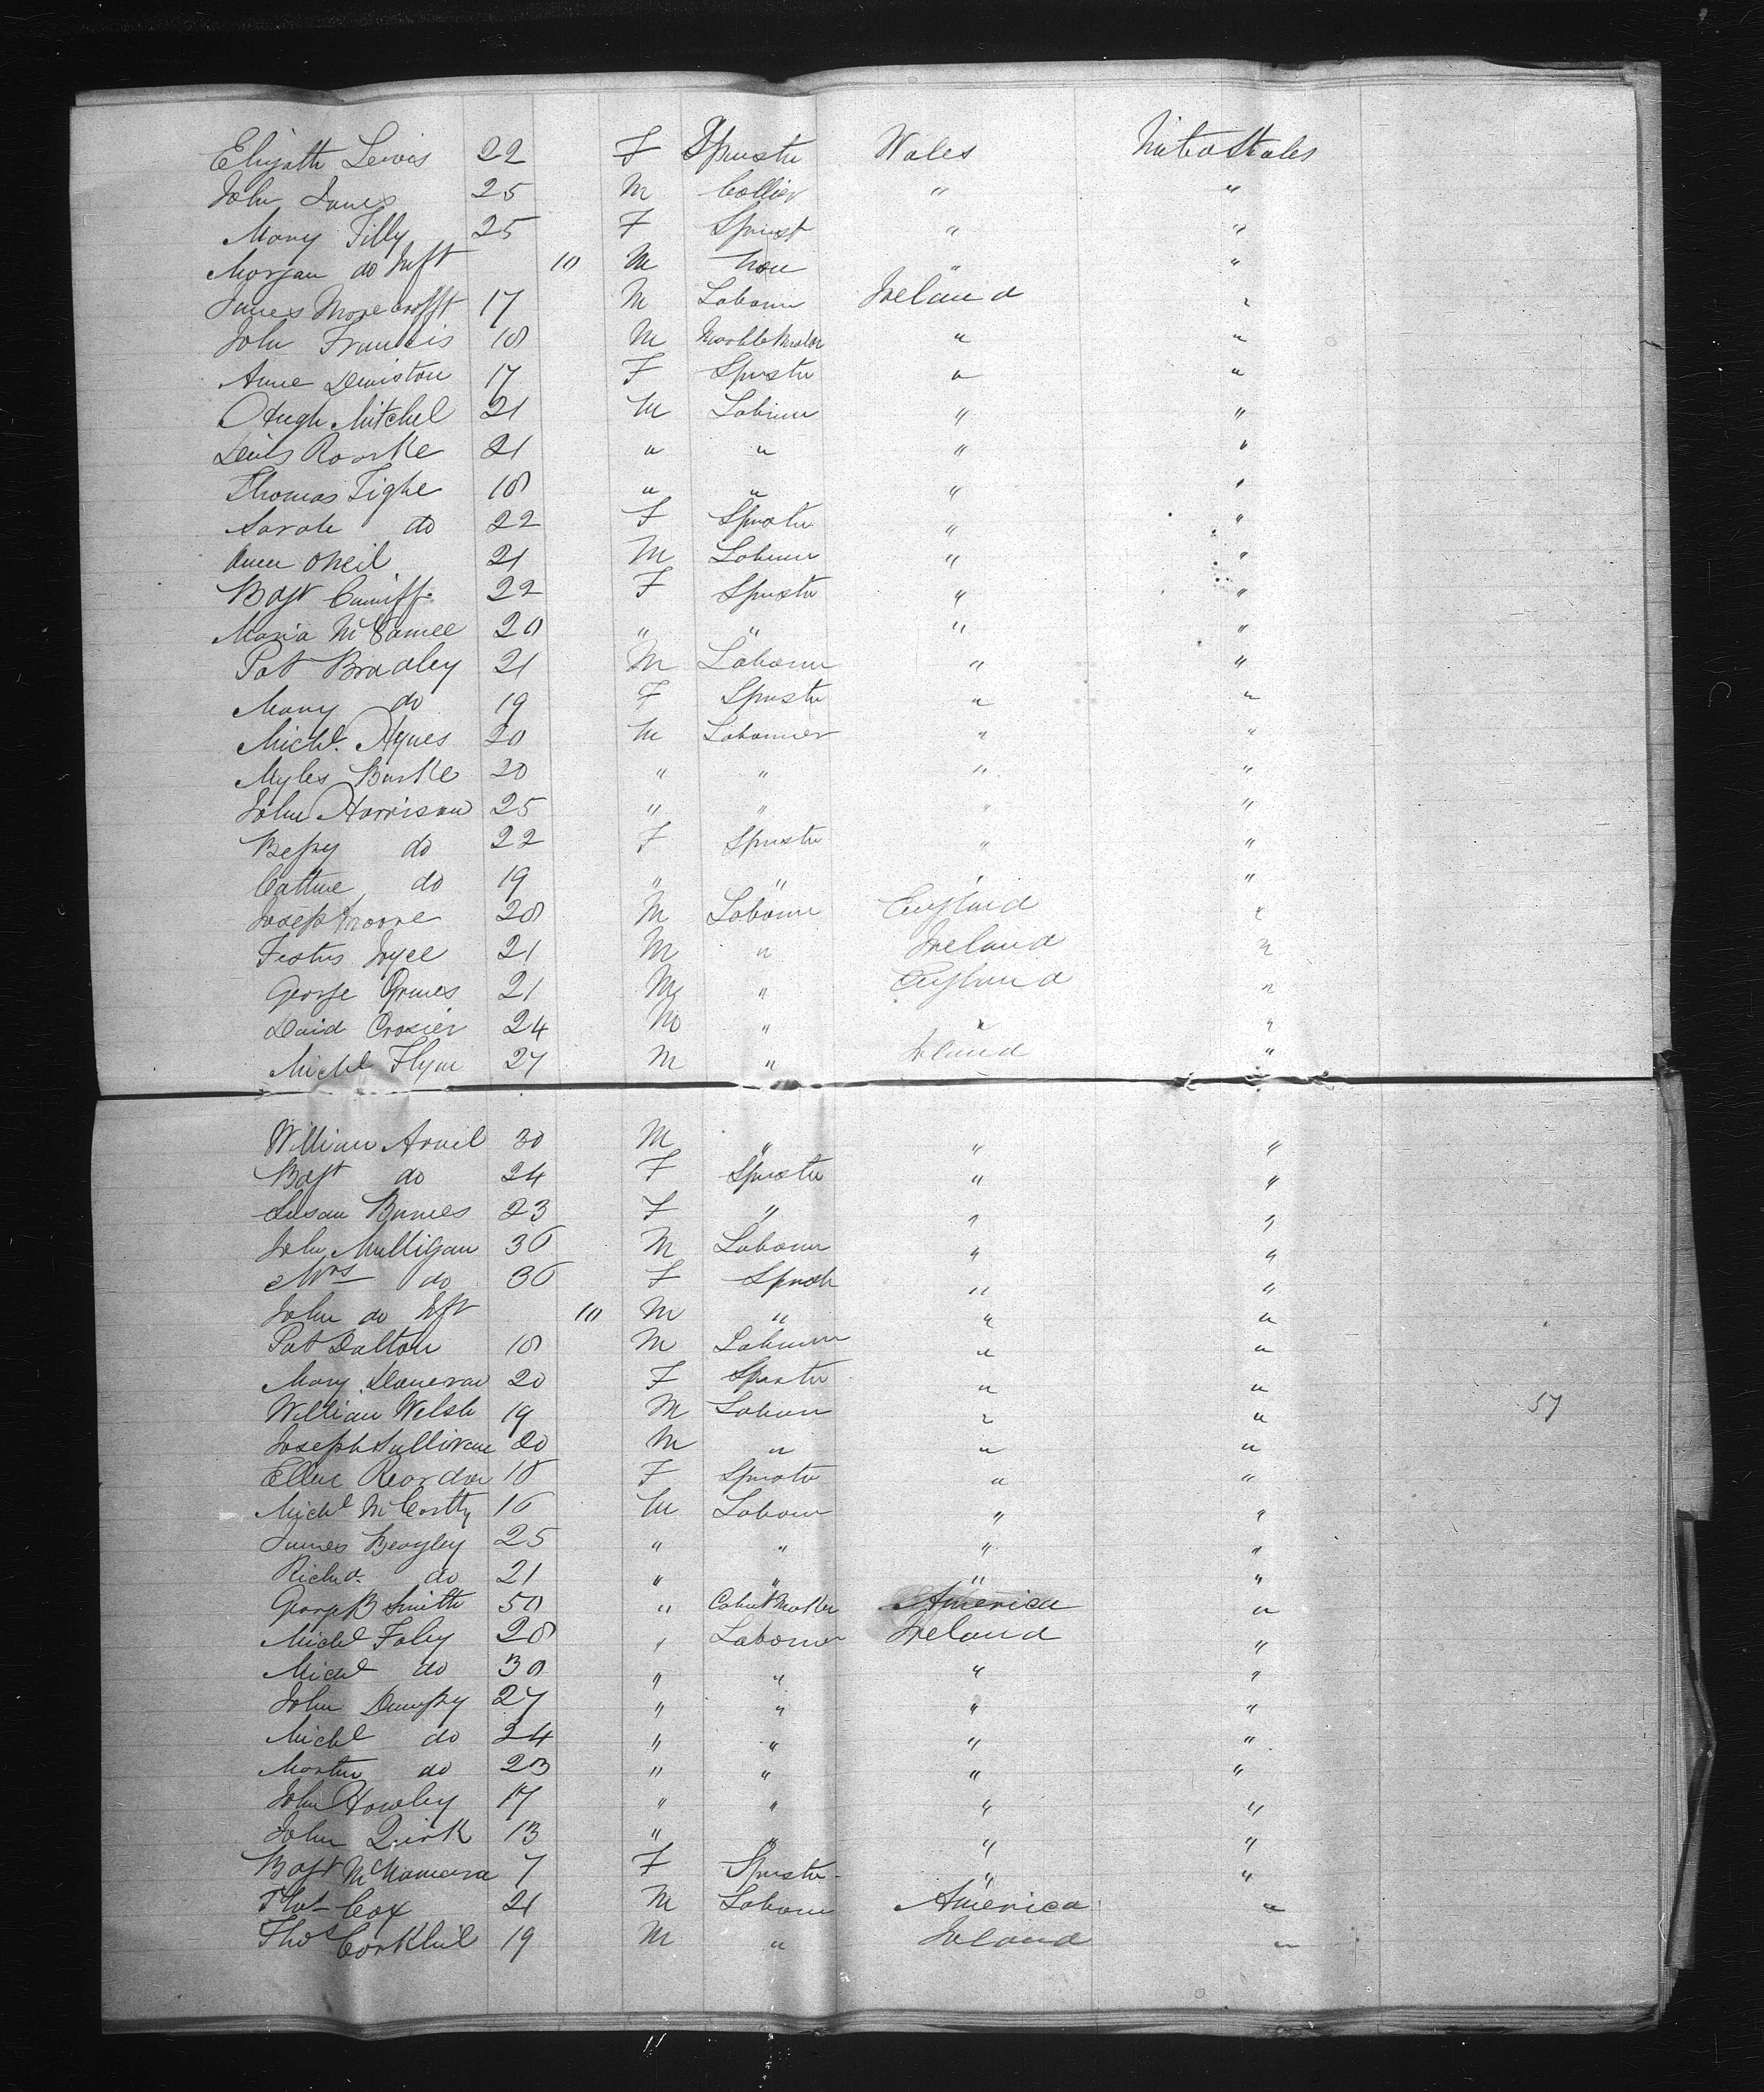 Elizath Lewis 22 F Spinster Wales United States
John Jones 25 M Collier " "
Mary Tilly 25 F Spinst " "
Morgan do Inft 10 M non " "
James Morecrofft 17 M Labourer Ireland "
John Francis 18 M Marble Mason " "
Anne Deniston 17 F Spinster " "
Hugh Mitchel 21 M Labourer " "
Denis Roorke 21 " " " "
Thomas Tighe 18 " " " "
Sarah do 22 F Spinster " "
Owen ONeil 21 M Labourer " "
Bdgt Cunniff 22 F Spinster " "
Maria McNamee 20 " " " "
Pat Bradley 21 M Labourer " "
Mary do 19 F Spinster " "
Michl. Hynes 20 M Labourer " "
Myles Burke 20 " " " "
John Harrison 25 " " " "
Bessy do 22 F Spinster " "
Cathne do 19 " " " "
Joseph Moore 28 M Labourer England "
Festus Joyce 21 M " Ireland "
George 21 M " England "
David Crosier 24 M " " "
Michl Flynn 27 M " Ireland "
William Arvil 30 M " " "
Bdgt do 24 F Spinster " "
Susan Burnes 23 F " " "
John Mulligan 36 M Labourer " "
Mrs do 36 F Spinster " "
John do Inft 10 M " " "
Pat Dalton 18 M Labourer " "
Mary Donovan 20 F Spinster " "
William Welsh 19 M Labourer " "
Joseph Sullivan 20 M " " "
Ellen Reardon 18 F Spinster " "
Michl McCartty 16 M Labourer " "
James Beagley 25 " " " "
Richd. do 21 " " " "
George B Smith 50 " Cabint Maker America "
Michl Foley 28 " Labourer Ireland "
Michl do 30 " " " "
John Dempsy 27 " " " "
Michl do 24 " " " "
Martin do 23 " " " "
John Howley 17 " " " "
John Quirk 13 " " " "
Bdgt McNamara 7 F Spinster " "
Thos Cox 21 M Labourer America "
Thos Corkhil 19 M " Ireland "
57